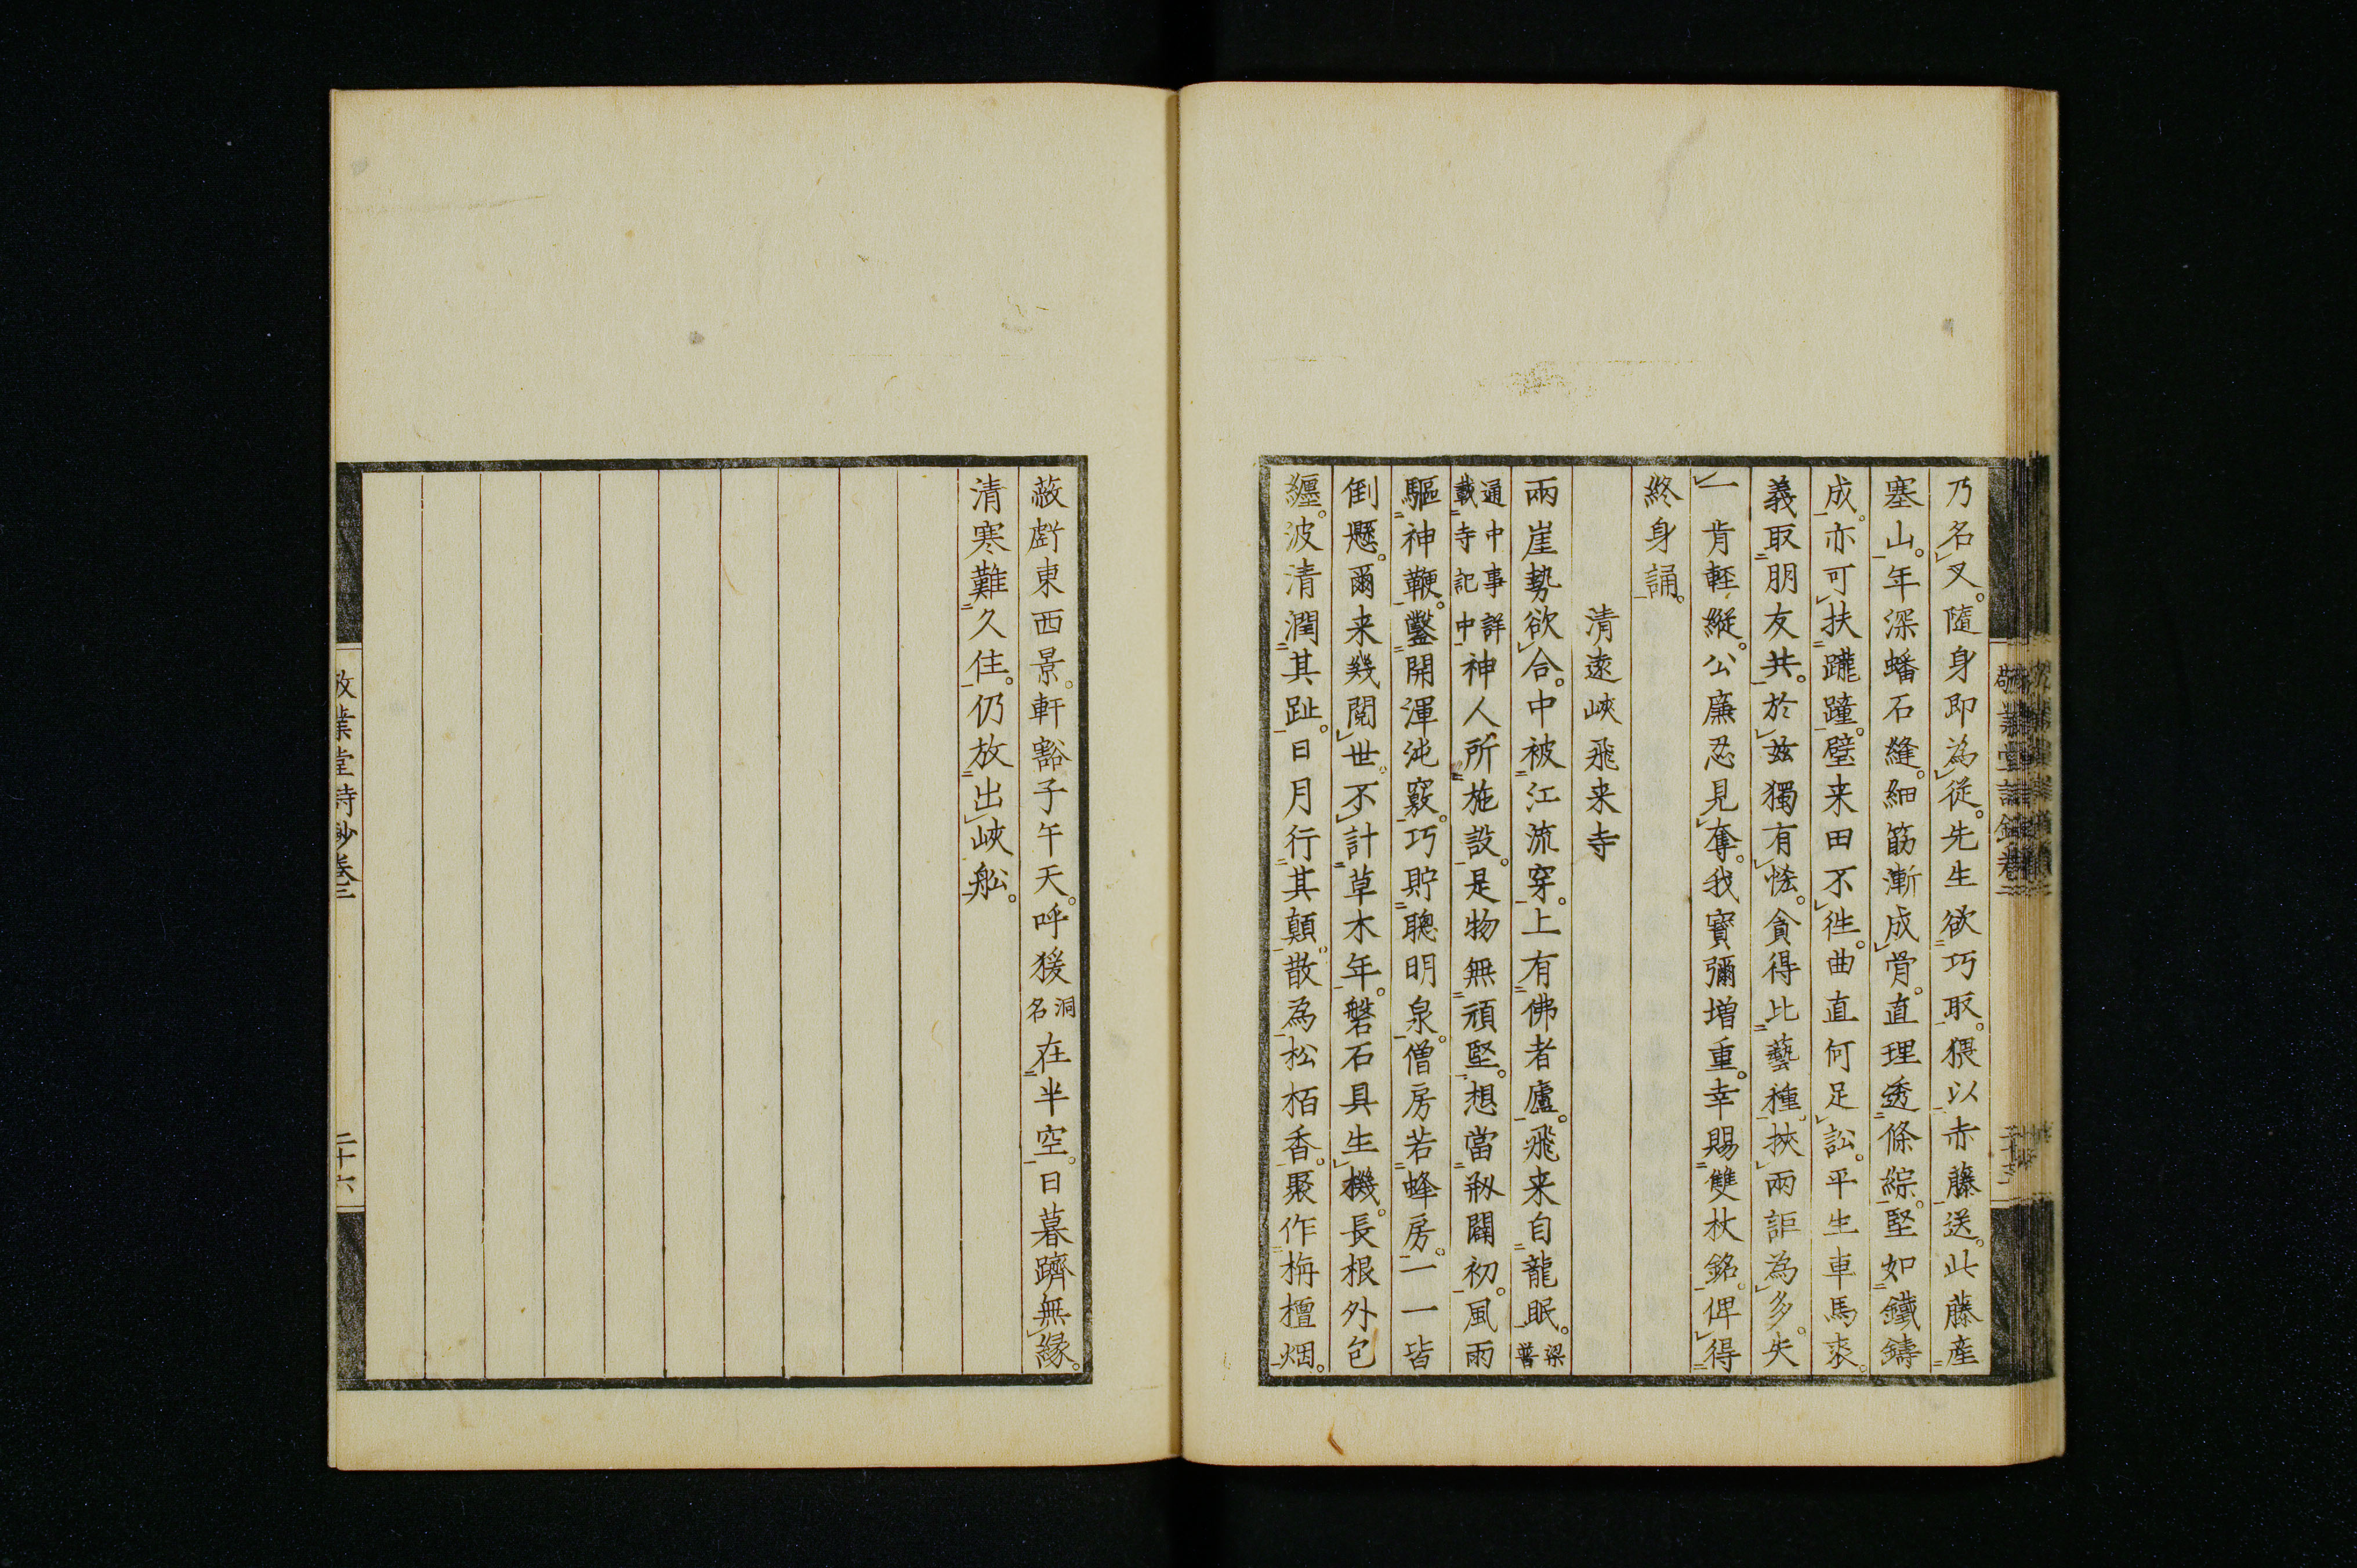 乃名叉。隨身即為從。先生欲巧取。猥以赤藤送。此藤產
塞山。年深蟠石縫。細筋漸成骨。直理透條綜。堅如鐵鑄
成。亦可扶躘蹱。璧来田不徃。曲直何足訟。平生車馬裘。
義取朋友共。於兹獨有恡。貪得比藝種。挾兩詎為多。失
一肯輕縱。公廉忍見奪。我寶彌增重。幸賜雙杖銘。俾得
終身誦。
清遠峽飛来寺
兩崖勢欲合。中被江流穿。上有佛者廬。飛来自龍眠。梁普
通中事詳載寺記中神人所施設。是物無頑堅。想當剏闢初。風雨
驅神鞭。鑿開渾沌竅。巧貯聰明泉。僧房若蜂房。一一皆
倒懸。爾来幾閱世。不計草木年。磐石具生機。長根外包
纏。波清潤其趾。日月行其顛。散為松栢香。聚作栴檀烟。
蔽虧東西景。軒豁子午天。呼猨洞名在半空。日暮躋無緣。
清寒難久住。仍放出峽舩。
敬業堂詩鈔卷三
二十六